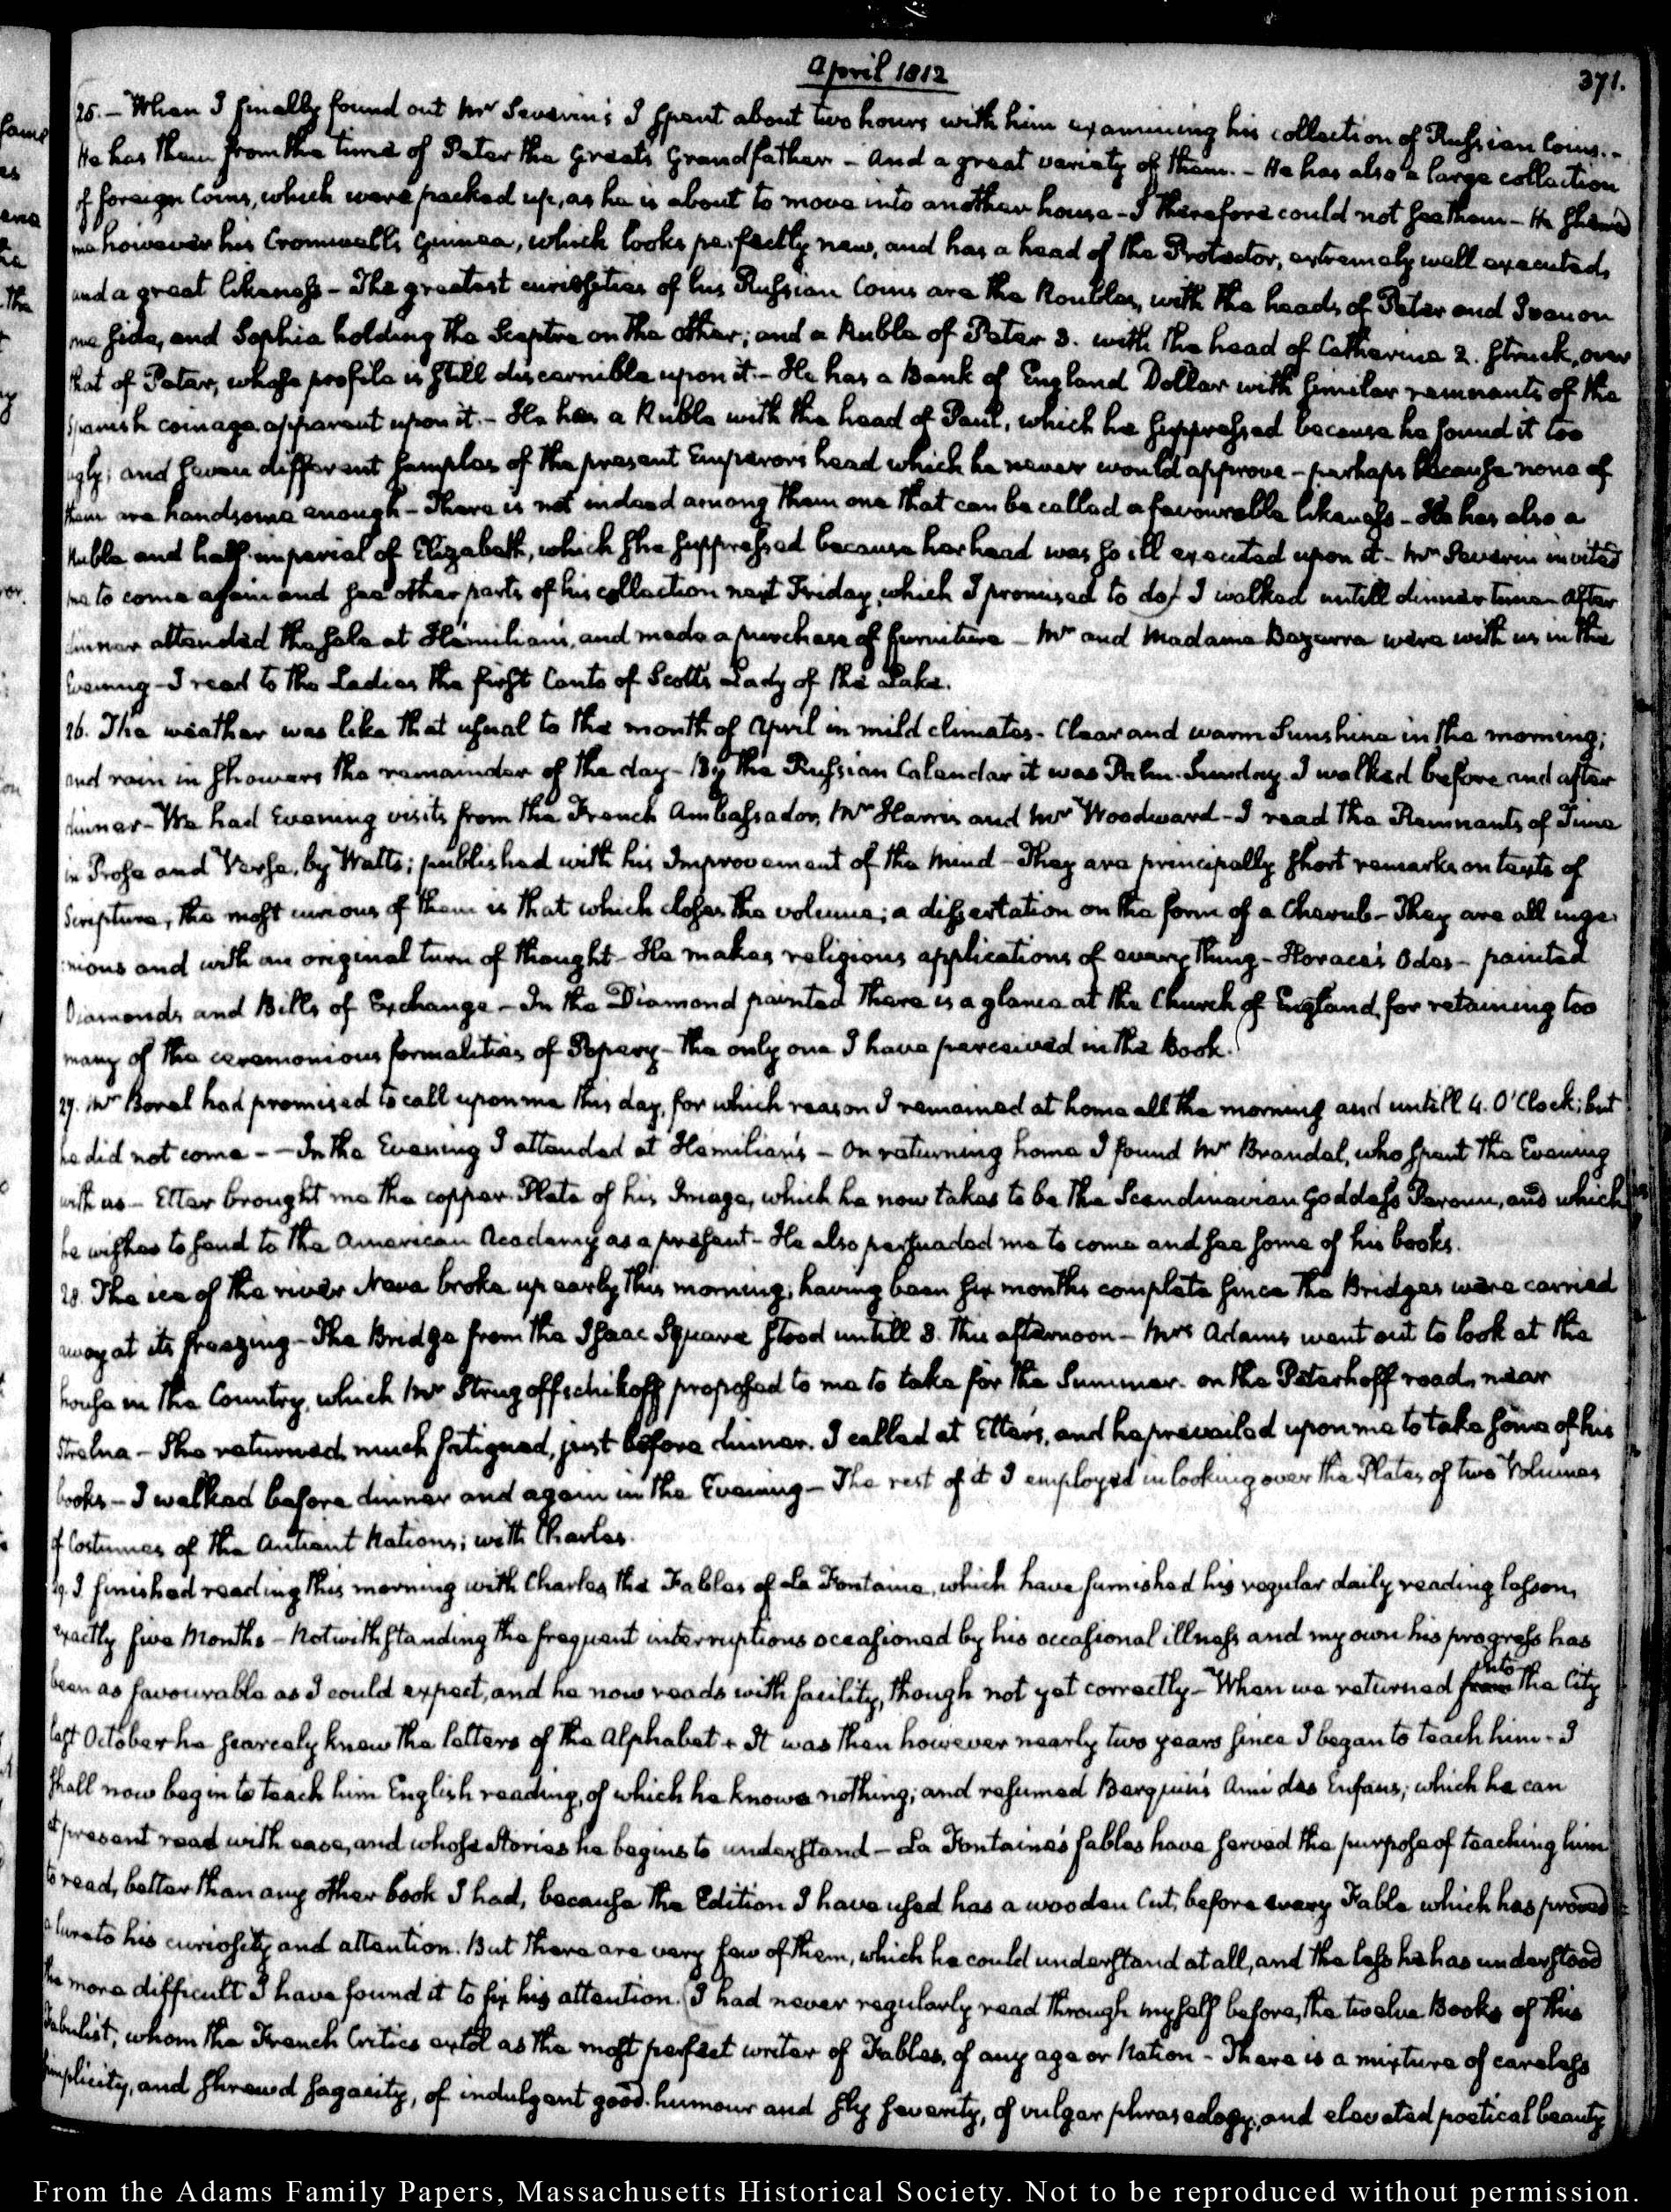 April 1812
371.
25. – When I finally found out Mr Severin's I spent about two hours with him examining his collection of Russian Coins. –
He has them from the time of Peter the Great's Grandfather – And a great variety of them. – He has also a large collection
of foreign Coins, which were packed up, as he is about to move into another house – I therefore could not see them – He shewed
me however his Cromwell's Guinea, which looks perfectly new, and has a head of the Protector, extremely well executed,
and a great likeness – The greatest curiosities of his Russian Coins are the Roubles, with the heads of Peter and Ivan on
one side, and Sophia holding the Sceptre on the other; and a Ruble of Peter 3. with the head of Catherine 2. struck, over
that of Peter, whose profile is still discernible upon it. – He has a Bank of England Dollar with similar remnants of the
Spanish coinage apparent upon it. – He has a Ruble with the head of Paul, which he suppressed because he found it too
ugly; and seven different samples of the present Emperor's head which he never would approve – perhaps because none of
them are handsome enough – There is not indeed among them one that can be called a favourable likeness – He has also a
Ruble and half-imperial of Elizabeth, which she suppressed because her head was so ill executed upon it – Mr Severin invited
me to come again and see other parts of his collection next Friday, which I promised to do) I walked untill dinner time – After
dinner attended the sale at Hämilian's, and made a purchase of furniture – Mr and Madame Bezerra were with us in the
Evening – I read to the Ladies the first Canto of Scott's Lady of the Lake.
26. The weather was like that usual to the month of April in mild climates – Clear and warm Sunshine in the morning;
and rain in showers the remainder of the day – By the Russian Calendar it was Palm-Sunday. I walked before and after
dinner – We had Evening visits from the French Ambassador, Mr Harris and Mr Woodward – I read the Remnants of Time
in Prose and Verse, by Watts; published with his Improvement of the Mind – They are principally short remarks on texts of
Scripture, the most curious of them is that which closes the volume; a dissertation on the form of a Cherub – They are all inge-
nious and with an original turn of thought – He makes religious applications of every thing – Horace's Odes – painted
Diamonds and Bills of Exchange – In the Diamond painted there is a glance at the Church of England, for retaining too
many of the ceremonious formalities of Popery – the only one I have perceived in the Book. (
27. Mr Borel had promised to call upon me this day, for which reason I remained at home all the morning and untill 4. O'Clock; but
he did not come – – In the Evening I attended at Hämilian's – On returning home I found Mr Brandel, who spent the Evening
with us – Etter brought me the copper-Plate of his Image, which he now takes to be the Scandinavian Goddess Peroun, and which
he wishes to send to the American Academy as a present – He also persuaded me to come and see some of his books.
28. The ice of the river Neva broke up early this morning; having been six months complete since the Bridges were carried
away at its freezing – The Bridge from the Isaac Square stood untill 3. this afternoon – Mrs Adams went out to look at the
house in the Country, which Mr Strugoffschikoff proposed to me to take for the Summer. on the Peterhoff road, near
Strelna – She returned, much fatigued, just before dinner. I called at Etter's, and he prevailed upon me to take some of his
books – I walked before dinner and again in the Evening – The rest of it I employed in looking over the Plates of two Volumes
of Costumes of the Antient Nations; with Charles.
29. I finished reading this morning with Charles, the Fables of La Fontaine, which have furnished his regular daily reading lesson,
exactly five Months – Notwithstanding the frequent interruptions occasioned by his occasional illness and my own his progress has
been as favourable as I could expect, and he now reads with facility, though not yet correctly – When we returned from into the City
last October he scarcely knew the letters of the Alphabet + It was then however nearly two years since I began to teach him – I
shall now begin to teach him English reading, of which he knows nothing; and resumed Berquin's Ami des Enfans; which he can
at present read with ease, and whose Stories he begins to understand – La Fontaine's fables have served the purpose of teaching him
to read, better than any other book I had, because the Edition I have used has a wooden Cut, before every Fable which has proved
a lure to his curiosity and attention. But there are very few of them, which he could understand at all, and the less he has understood
the more difficult I have found it to fix his attention. (I had never regularly read through myself before, the twelve Books of this
Fabulist, whom the French Critics extol as the most perfect writer of Fables, of any age or Nation – There is a mixture of careless
simplicity, and shrewd sagacity, of indulgent good-humour and sly severity, of vulgar phraseology, and elevated poetical beauty
From the Adams Family Papers, Massachusetts Historical Society. Not to be reproduced without permission.